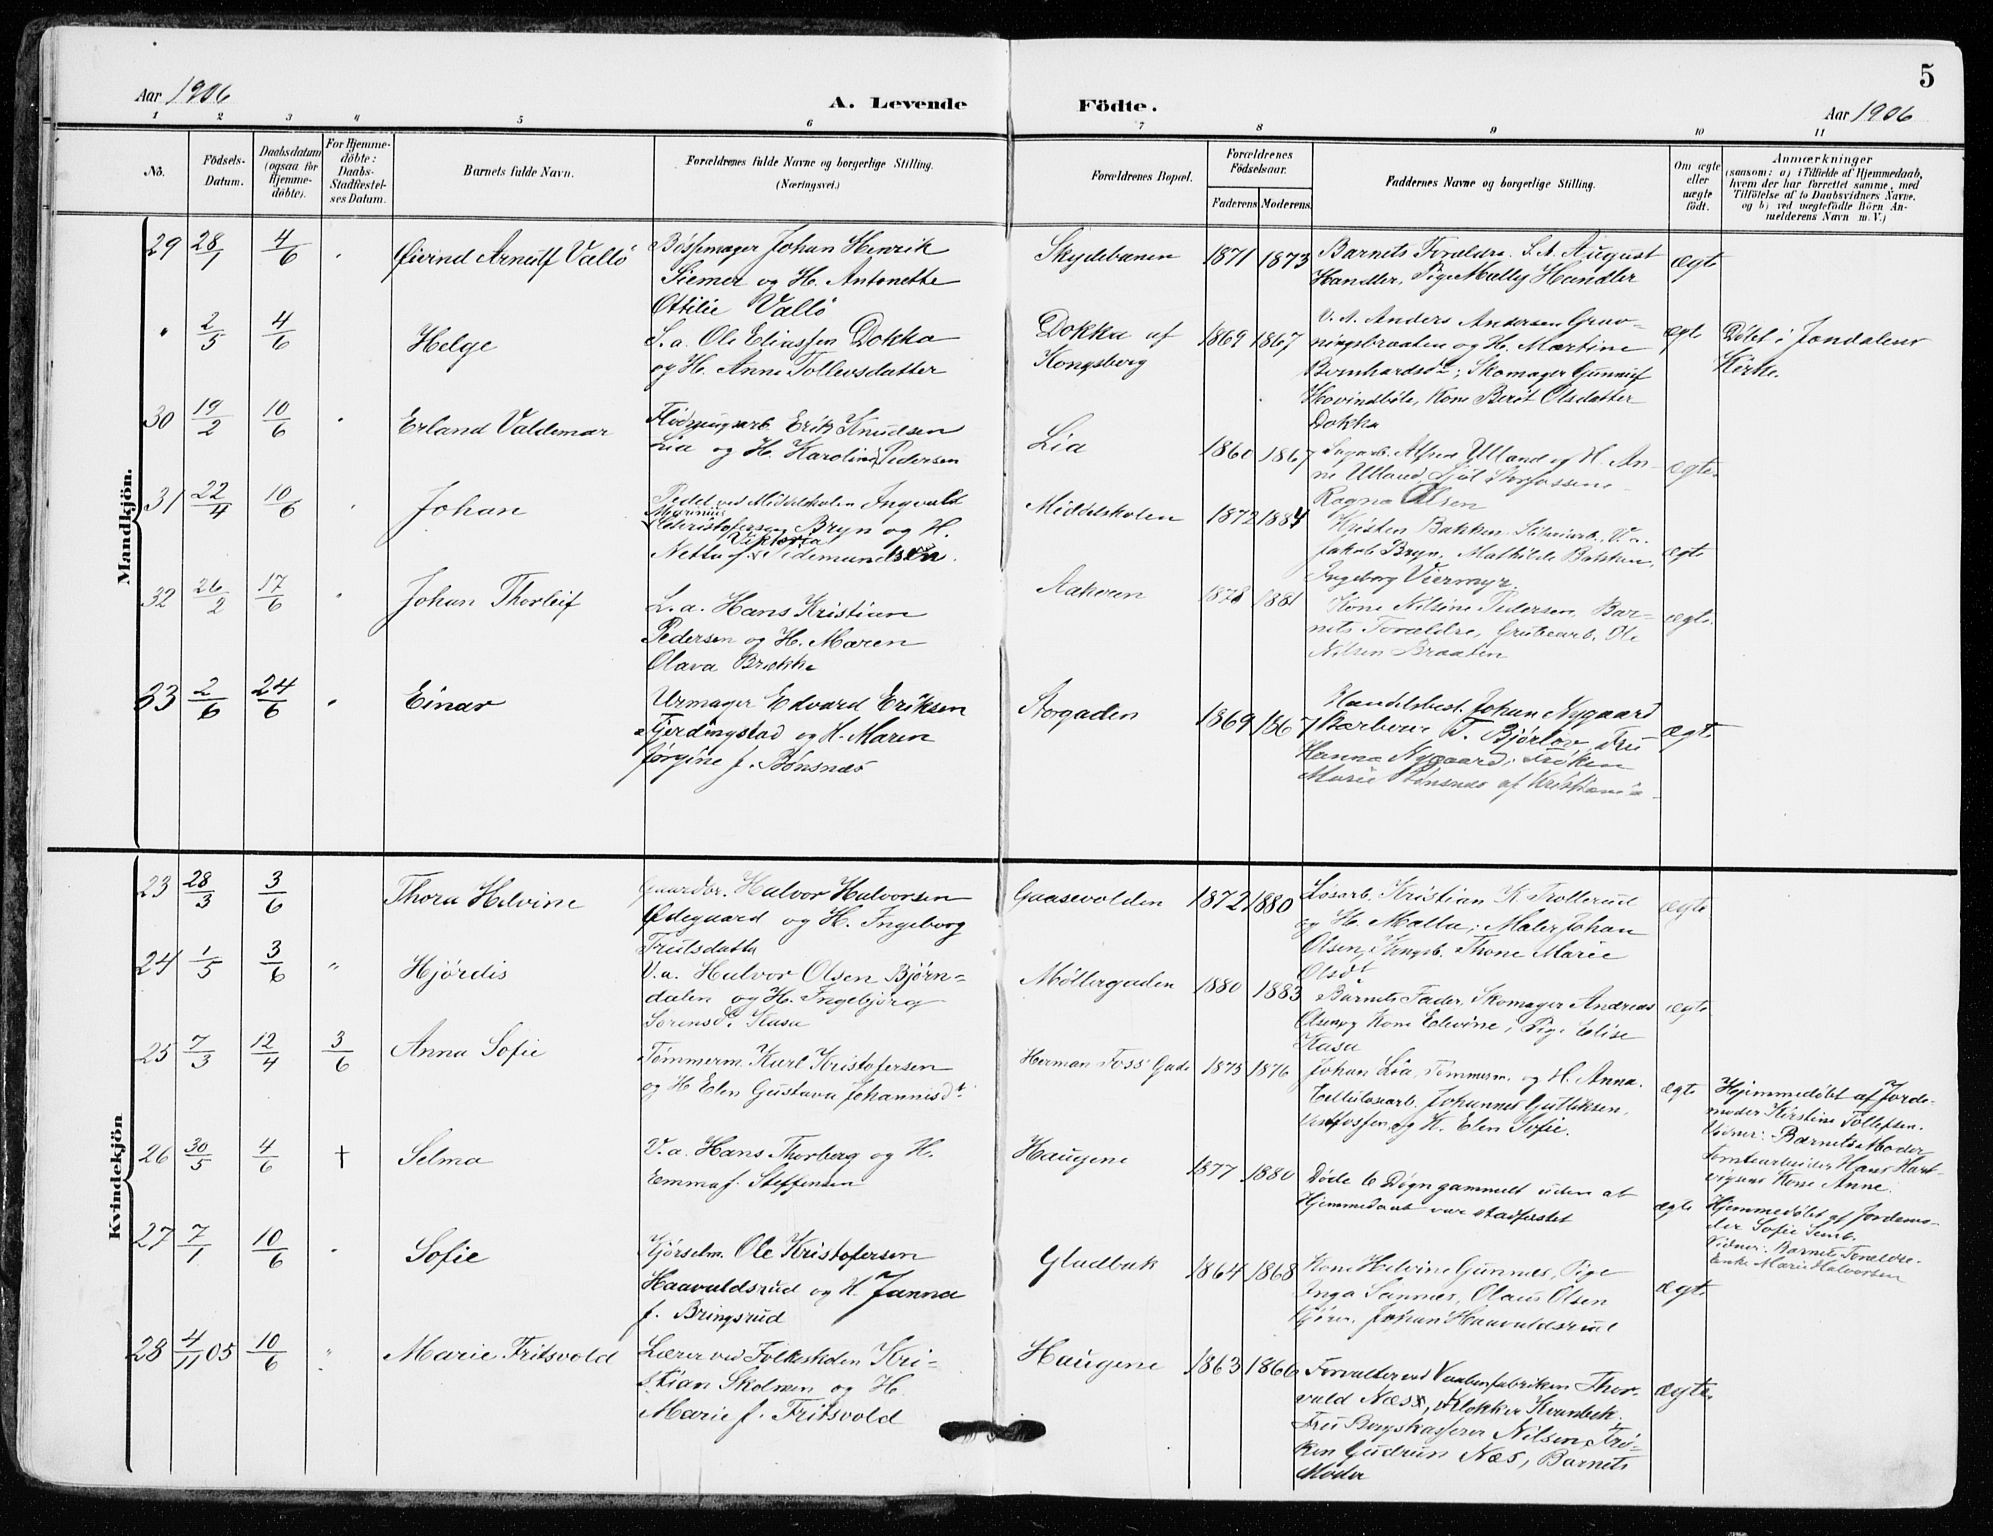 5
Aar 1906
A. Levende Födte.
Aar 1906
1 2 3 4 5 6 7 8 9 10 11
No.
Födsels-
Datum.
Daabsdatum
(ogsaa for
Hjemme-
döbte).
For Hjemme-
döbte:
Daabs-
Stadfæstel-
ses Datum.
Barnets fulde Navn.
Forældrenes fulde Navne og borgerlige Stilling.
(Næringsvei.)
Forældrenes Bopæl.
Forældrenes
Födselsaar.
Faderens Moderens.
Faddernes Navne og borgerlige Stilling.
Om ægte
eller
uægte
födt.
Anmærkninger
(saasom: a) i Tilfælde af Hjemmedaab,
hvem der har forrettet samme, med
Tilföielse af to Daabsvidners Navne,
og b) ved uægtefödte Börn An-
melderens Navn m. V.)
Mandkjön.
29 28/1 4/6 Øivind Arnulf Vallø
Bøssemager Johan Henrik
Siemer og H. Antonette
Ottilie Vallø
Skydebanen 1871 1873
Barnets Forældre. S. A. August
Handler, Pige Mally Handler
ægte
" 2/5 4/6 Helge
S. a. Ole Eliassen Dokka
og H. Anne Tollevsdatter
Dokka af
Kongsberg
1869 1867
V. A. Anders Andersen Grav-
ningsbraaten og H. Martine
Bernhardsdt; Skomager Gunnuf
Hovindbøle, Kone Berøt Olsdatter
Dokka
ægte
Døbt i Jondalens
Kirke.
30 19/2 10/6 Erland Valdemar
Erik Knudsen
Lia og H. Karoline Pedersen
Lia 1860 1867
Sagarb. Alfred Ulland og H. An-
ne Ulland,
Ragna Olsen
ægte
31 22/4 10/6 Johan
Pedel ved Middelskolen Ingvald
Marinius
Kristofersen Bryn og H.
Viktoria
Netta f. Pedemundsen.
Middelskolen 1872 1884
Kristen Bakken,
Jakob Bryn, Mathilde Bakken,
Ingeborg Viermyr.
ægte
32 26/2 17/6 Johan Thorleif
L. a. Hans Kristian
Pedersen og H. Maren
Olava Brekke
Aakeren 1878 1881
Kone Nilsine Pedersen, Bar-
nets Forældre, Grubearb. Ole
Nilsen Braaten
ægte.
33 2/6 24/6 Einar
Urmager Edvard Eriksen
Gjerdingstad og H. Maren
Jørgine f. Bønsnæs
Storgaden 1869 1867
Handelsbest. Johan Nygaard
Barberer T. Bjørløv, Fru
Hanna Nygaard, Frøken
Marie Bønsnæs af Kristiania.
ægte
Kvindekjön
23 28/3 3/6 Thora Helvine
Gaardbr. Halvor Halvorsen
Ødegaard og H. Ingeborg
Trulsdatter
Gaasevolden 1872 1880
Løsarb. Kristian K. Trollerud
og H. Malla; Maler Johan
Olsen, Kongsb. Thone Marie
Olsdt
ægte
24 1/5 3/6 " Hjørdis
V. a. Halvor Olsen Bjørn-
dalen og H. Ingebjørg
Sørensdt Kasa
Møllergaden 1880 1883
Barnets Fader, Skomager Andreas
Olsen og Kone Edvine, Pige Elise
Kasa
ægte
25 7/3 12/4 3/6 Anna Sofie
Tømmerm. Karl Kristofersen
og H. Elen Gustava Johannisdt.
Herman Foss' Gade 1875 1876
Johan Lia, Tømmerm. og H. Anna.
Cellulosearb. Johannes Gulliksen,
Vittingfossen, og H. Elen Sofie.
ægte
Hjemmedøbt af Jorde-
moder Kirstine Tollefsen.
Vidner: Barnets Moder
Tomtearbeider Hans Hart-
vigsens Kone Anne.
26 30/5 4/6 † Selma
V. a. Hans Thorberg og H.
Emma f. Steffensen
Haugene 1877 1880
Døde 6 Døgn gammelt uden at
Hjemmedaab var stadfestet
ægte
Hjemmedøbt af Jordemo-
der Sofie Semb.
Vidner: Barnets Forældre.
Enke Marie Halvorsen
27 7/1 10/6 Sofie
Kjørselm. Ole Kristofersen
Haavaldsrud og H. Janna
f. Bringsrud
Gladbak 1864 1868
Kone Helvine Gunnæs, Pige
Inga Sannes, Olaus Olsen
Kjører. Johan Haavaldsrud
ægte
28 4/11 05 10/6 " Marie Fritsvold
Lærer ved Folkeskolen Kri-
stian Skolmen og H.
Marie f. Fritsvold
Haugene 1863 1866
Forvalter ved Vaabenfabriken Thor-
vald Næss, Klokker Kvarnbek
Fru Bergskasserer Nilsen, Frø-
ken Gudrun Næs, Barnets
Moder
ægte.